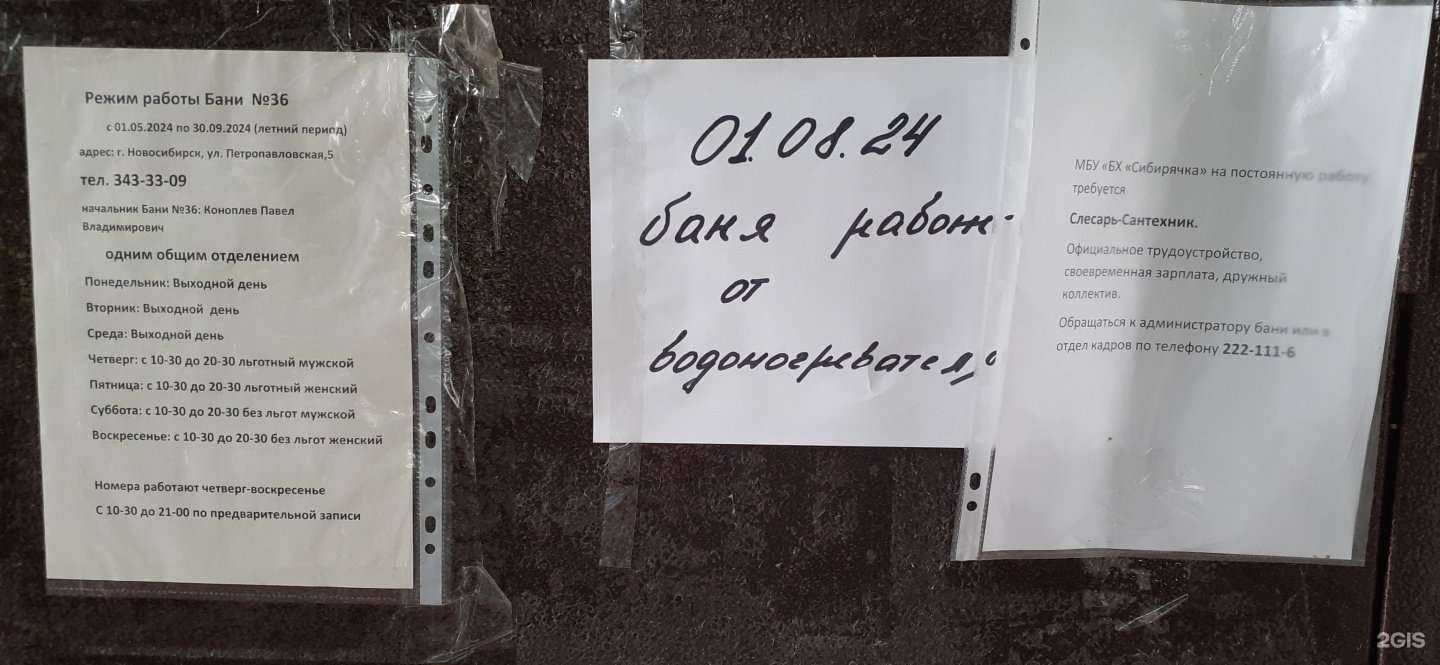 Режим работы Бани №36
с 01.05.2024 по 30.09.2024 (летний период)
адрес: г. Новосибирск, ул. Петропавловская,5
тел. 343-33-09
начальник Бани №36: Коноплев Павел
Владимирович
одним общим отделением
Понедельник: Выходной день
Вторник: Выходной день
Среда: Выходной день
Четверг: с 10-30 до 20-30 льготный мужской
Пятница: с 10-30 до 20-30 льготный женский
Суббота: с 10-30 до 20-30 без льгот мужской
Воскресенье: с 10-30 до 20-30 без льгот женский
Номера работают четверг-воскресенье
С 10-30 до 21-00 по предварительной записи
01.08.24
баня работ
от
водоногревател
МБУ «БХ «Сибирячка» на постоянную работу
требуется
Слесарь-Сантехник.
Официальное трудоустройство,
своевременная зарплата, дружный
коллектив.
Обращаться к администратору бани или в
отдел кадров по телефону 222-111-6
2GIS